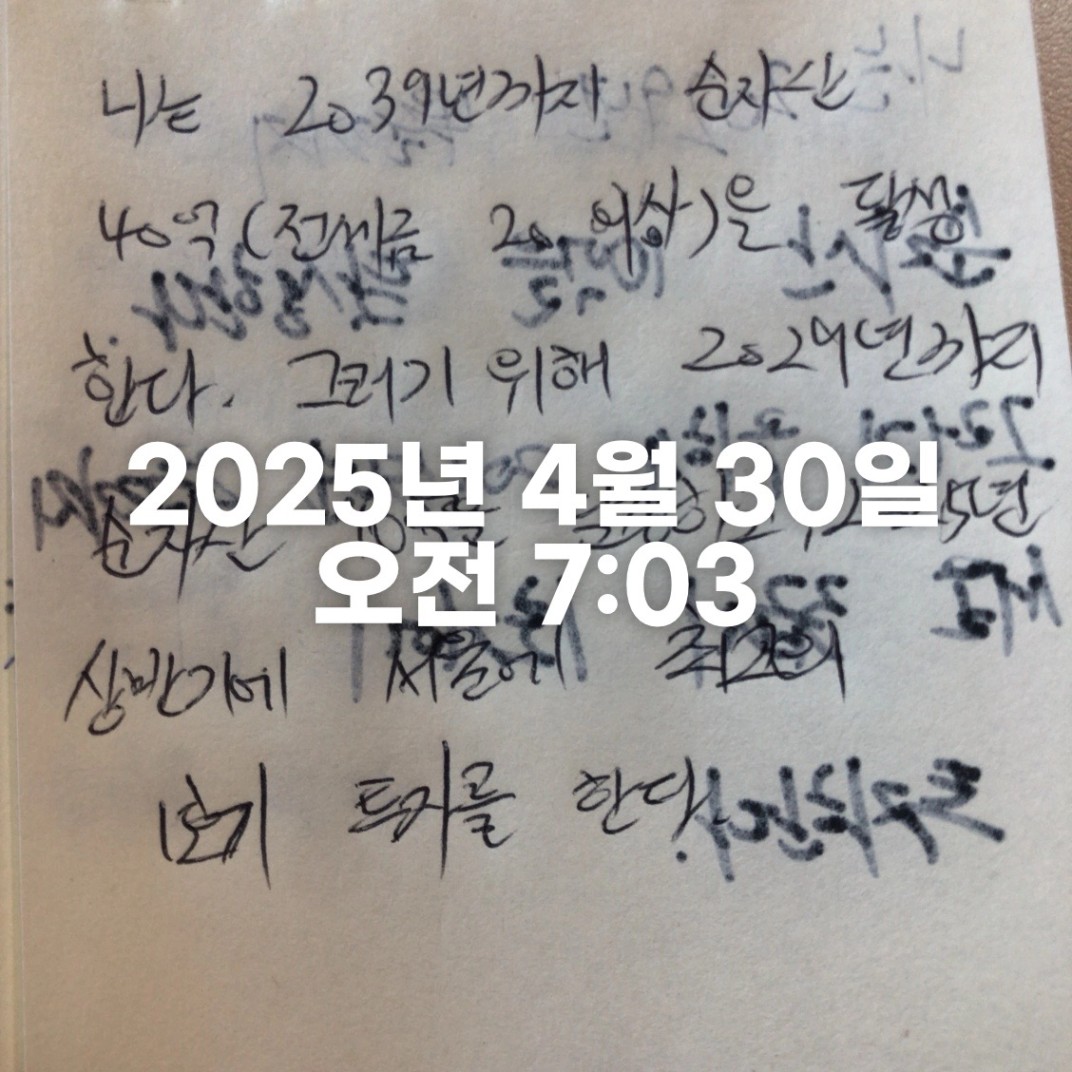 나는 2039년까지 순자산
40억(전세금 20억 이상)을 달성
한다. 그러기 위해 2029년까지
2025년 4월 30일
순자산
오전 7:03
상반기에 서울에 최고의
1호기 투자를 한다.